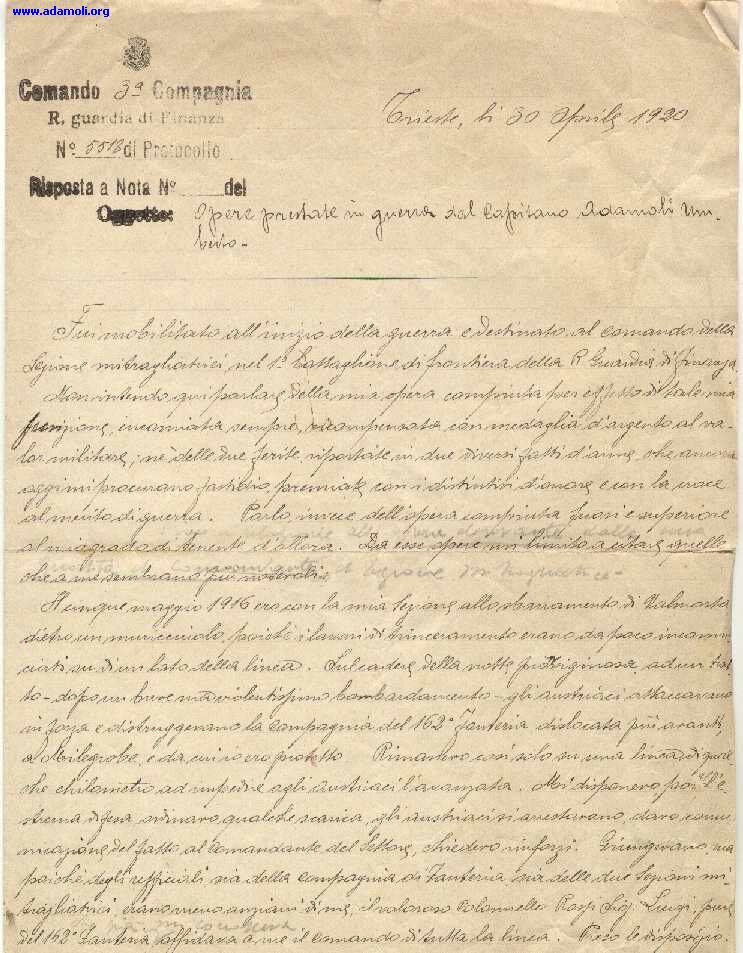 www.adamoli.org
Comando 3ª Compagnia
R. guardia di Finanza
Nº 5518 di Protocollo
Risposta a Nota Nº del
Oggetto: Opere prestate in guerra dal Capitano Adamoli Um-
berto-
Trieste, li 30 Aprile 1920
Fui mobilitato all'inizio della guerra e destinato al comando della
Sezione mitragliatrici nel 1º Battaglione di frontiera della R. Guardia di finanza.
Non intendo qui parlare della mia opera compiuta per effetto di tale mia
funzione, incarnata sempre, ricompensata con medaglia d'argento al va-
lor militare; nè delle due ferite riportate in due diversi fatti d'arme, che ancora
oggi mi procurano fastidio, premiate con i distintivi d'onore e con la croce
al merito di guerra. Parlo invece dell'opera compiuta fuori e superiore
al mio grado di tenente d'allora. Da esse opere mi limito a citare quelle
che a me sembrano più notevoli.
Il cinque maggio 1916 ero con la mia Sezione allo sbarramento di Valmorta
dietro un muricciuolo, poichè i lavori di trinceramento erano da poco incomin-
ciati su di un lato della linea. Sul cadere della notte ad un trat-
to - dopo un breve ma violentissimo bombardamento - gli austriaci attaccavano
in forza e distruggevano la compagnia del 162º Fanteria dislocata più avanti,
a Milegrobe, e da cui io ero protetto. Rimanevo così solo su una linea di qual-
che chilometro ad impedire agli austriaci l'avanzata. Mi disponevo per l'e-
strema difesa, ordinavo qualche scarica, gli austriaci si arrestavano, davo comu-
nicazione del fatto al comandante del Settore, chiedevo rinforzi. Giungevano, ma
poichè degli ufficiali sia della compagnia di Fanteria sia delle due Sezioni mi-
tragliatrici, erano meno anziani di me, il valoroso Colonnello Sig. Luigi, pure
del 162º Fanteria affidava a me il comando di tutta la linea. Preso le disposizio-